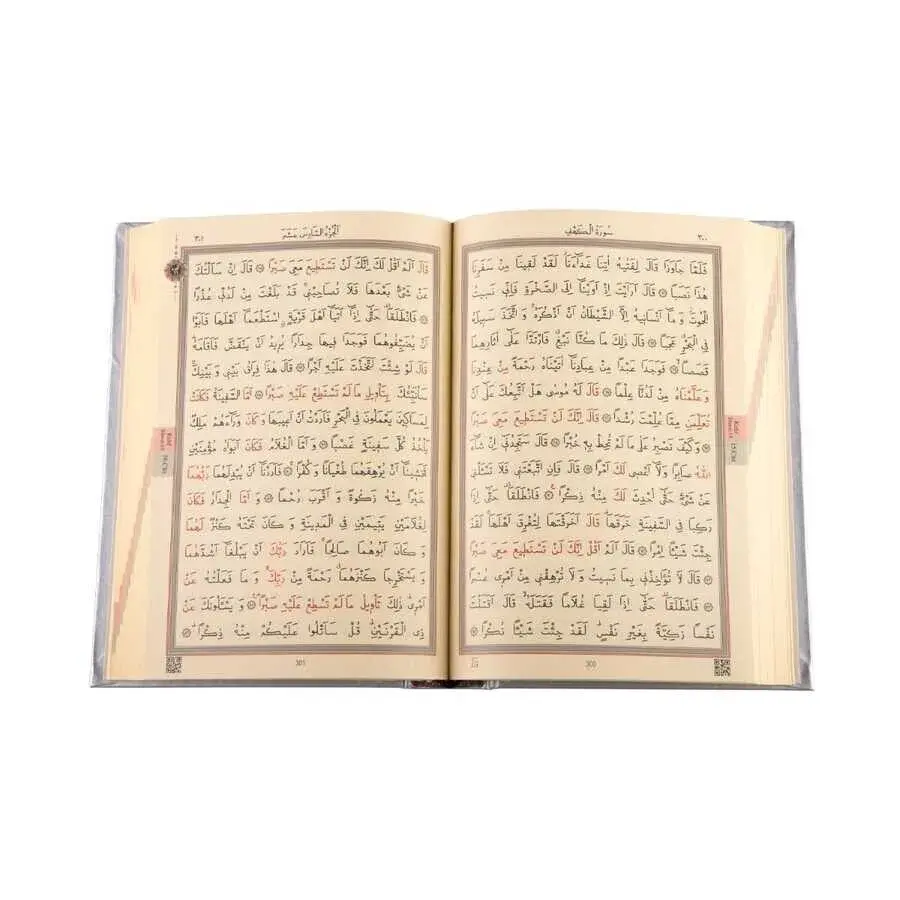 سُورَةُ الْكَهْفِ
٣٠٠
فَلَمَّا جَاوَزَا قَالَ لِفَتٰيهُ اٰتِنَا غَدَٓاءَنَا لَقَدْ لَقٖينَا مِنْ سَفَرِنَا
هٰذَا نَصَبًا ۝ قَالَ اَرَاَيْتَ اِذْ اَوَيْنَٓا اِلَى الصَّخْرَةِ فَاِنّٖى نَسٖيتُ
الْحُوتَ وَ مَٓا اَنْسَانٖيهُ اِلَّا الشَّيْطَانُ اَنْ اَذْكُرَهُ وَ اتَّخَذَ سَبٖيلَهُ
فِى الْبَحْرِ عَجَبًا ۝ قَالَ ذٰلِكَ مَا كُنَّا نَبْغِ فَارْتَدَّا عَلٰٓى اٰثَارِهِمَا
قَصَصًا ۝ فَوَجَدَا عَبْدًا مِنْ عِبَادِنَٓا اٰتَيْنَاهُ رَحْمَةً مِنْ عِنْدِنَا
وَ عَلَّمْنَاهُ مِنْ لَدُنَّا عِلْمًا ۝ قَالَ لَهُ مُوسٰى هَلْ اَتَّبِعُكَ عَلٰٓى اَنْ
تُعَلِّمَنِ مِمَّا عُلِّمْتَ رُشْدًا ۝ قَالَ اِنَّكَ لَنْ تَسْتَطٖيعَ مَعِىَ صَبْرًا
۝ وَ كَيْفَ تَصْبِرُ عَلٰى مَا لَمْ تُحِطْ بِهٖ خُبْرًا ۝ قَالَ سَتَجِدُنٖٓى اِنْ شَٓاءَ
اللّٰهُ صَابِرًا وَلَٓا اَعْصٖى لَكَ اَمْرًا ۝ قَالَ فَاِنِ اتَّبَعْتَنٖى فَلَا تَسْـَٔلْنٖى
عَنْ شَیْءٍ حَتّٰٓى اُحْدِثَ لَكَ مِنْهُ ذِكْرًا ۝ فَانْطَلَقَا حَتّٰٓى اِذَا
رَكِبَا فِى السَّفٖينَةِ خَرَقَهَا قَالَ اَخَرَقْتَهَا لِتُغْرِقَ اَهْلَهَا لَقَدْ
جِئْتَ شَيْـًٔا اِمْرًا ۝ قَالَ اَلَمْ اَقُلْ اِنَّكَ لَنْ تَسْتَطٖيعَ مَعِىَ صَبْرًا
۝ قَالَ لَا تُؤَاخِذْنٖى بِمَا نَسٖيتُ وَ لَا تُرْهِقْنٖى مِنْ اَمْرٖى عُسْرًا
۝ فَانْطَلَقَا حَتّٰٓى اِذَا لَقِيَا غُلَامًا فَقَتَلَهُ قَالَ اَقَتَلْتَ
نَفْسًا زَكِيَّةً بِغَيْرِ نَفْسٍ لَقَدْ جِئْتَ شَيْـًٔا نُكْرًا ۝
300
اَلْجُزْءُ السَّادِسَ عَشَرَ
٣٠١
قَالَ اَلَمْ اَقُلْ لَكَ اِنَّكَ لَنْ تَسْتَطٖيعَ مَعِىَ صَبْرًا ۝ قَالَ اِنْ سَاَلْتُكَ
عَنْ شَیْءٍ بَعْدَهَا فَلَا تُصَاحِبْنٖى قَدْ بَلَغْتَ مِنْ لَدُنّٖى عُذْرًا
۝ فَانْطَلَقَا حَتّٰٓى اِذَٓا اَتَيَٓا اَهْلَ قَرْيَةٍ اسْتَطْعَمَٓا اَهْلَهَا فَاَبَوْا
اَنْ يُضَيِّفُوهُمَا فَوَجَدَا فٖيهَا جِدَارًا يُرٖيدُ اَنْ يَنْقَضَّ فَاَقَامَهُ
قَالَ لَوْ شِئْتَ لَتَّخَذْتَ عَلَيْهِ اَجْرًا ۝ قَالَ هٰذَا فِرَاقُ بَيْنٖى وَ بَيْنِكَ
سَاُنَبِّئُكَ بِتَاْوٖيلِ مَا لَمْ تَسْتَطِعْ عَلَيْهِ صَبْرًا ۝ اَمَّا السَّفٖينَةُ فَكَانَتْ
لِمَسَاكٖينَ يَعْمَلُونَ فِى الْبَحْرِ فَاَرَدْتُ اَنْ اَعٖيبَهَا وَ كَانَ وَرَٓاءَهُمْ مَلِكٌ
يَاْخُذُ كُلَّ سَفٖينَةٍ غَصْبًا ۝ وَ اَمَّا الْغُلَامُ فَكَانَ اَبَوَاهُ مُؤْمِنَيْنِ
فَخَشٖينَٓا اَنْ يُرْهِقَهُمَا طُغْيَانًا وَ كُفْرًا ۝ فَاَرَدْنَٓا اَنْ يُبْدِلَهُمَا رَبُّهُمَا
خَيْرًا مِنْهُ زَكٰوةً وَ اَقْرَبَ رُحْمًا ۝ وَ اَمَّا الْجِدَارُ فَكَانَ
لِغُلَامَيْنِ يَتٖيمَيْنِ فِى الْمَدٖينَةِ وَ كَانَ تَحْتَهُ كَنْزٌ لَهُمَا
وَ كَانَ اَبُوهُمَا صَالِحًا فَاَرَادَ رَبُّكَ اَنْ يَبْلُغَٓا اَشُدَّهُمَا
وَ يَسْتَخْرِجَا كَنْزَهُمَا رَحْمَةً مِنْ رَبِّكَ وَ مَا فَعَلْتُهُ عَنْ
اَمْرٖى ذٰلِكَ تَاْوٖيلُ مَا لَمْ تَسْطِعْ عَلَيْهِ صَبْرًا ۝ وَ يَسْـَٔلُونَكَ عَنْ
ذِى الْقَرْنَيْنِ قُلْ سَاَتْلُوا عَلَيْكُمْ مِنْهُ ذِكْرًا ۝
301